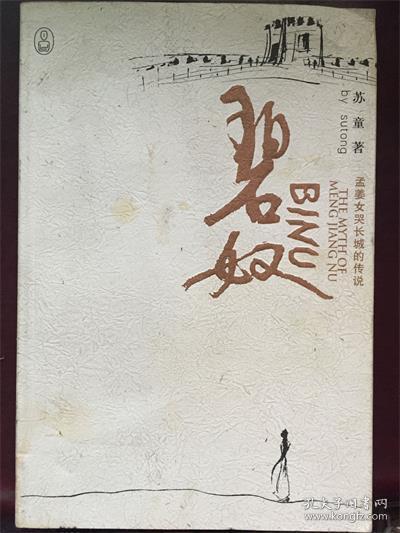 苏童著
by sutong
碧奴
BINU
THE MYTH OF
MENG JIANG NU
孟姜女哭长城的传说
孔夫子旧书网
www.kongfz.com